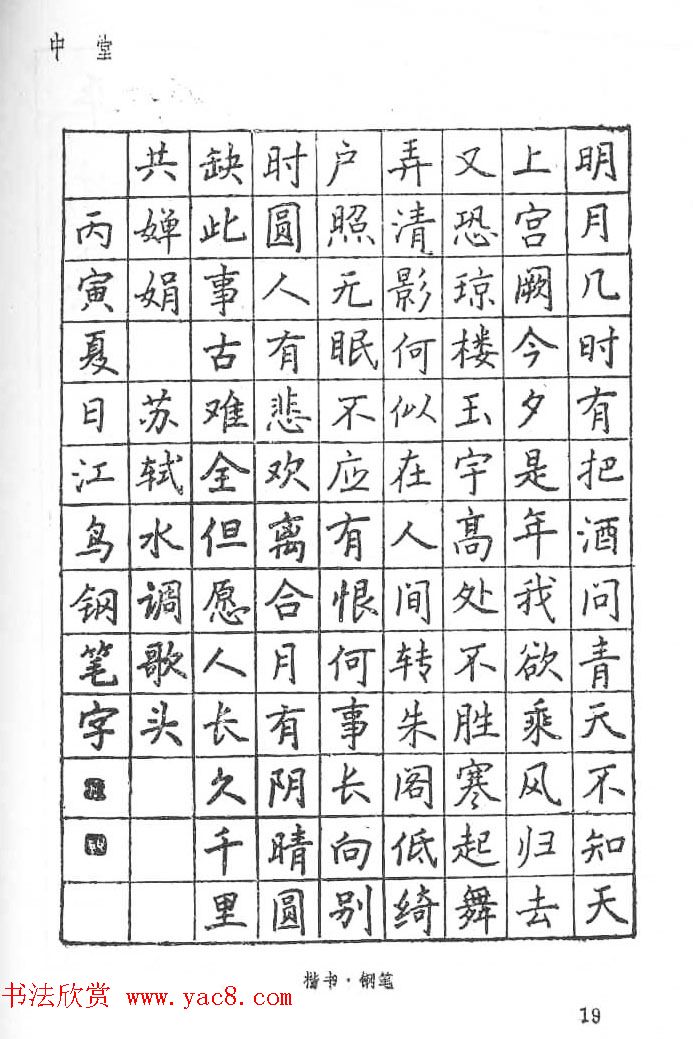 中堂
明月几时有把酒问青天不知天
上宫阙今夕是年我欲乘风归去
又恐琼楼玉宇高处不胜寒起舞
弄清影何似在人间转朱阁低绮
户照无眠不应有恨何事长向别
时圆人有悲欢离合月有阴晴圆
缺此事古难全但愿人长久千里
共婵娟 苏轼水调歌头
丙寅夏日江鸟钢笔字
楷书·钢笔
书法欣赏 www.yac8.com
19